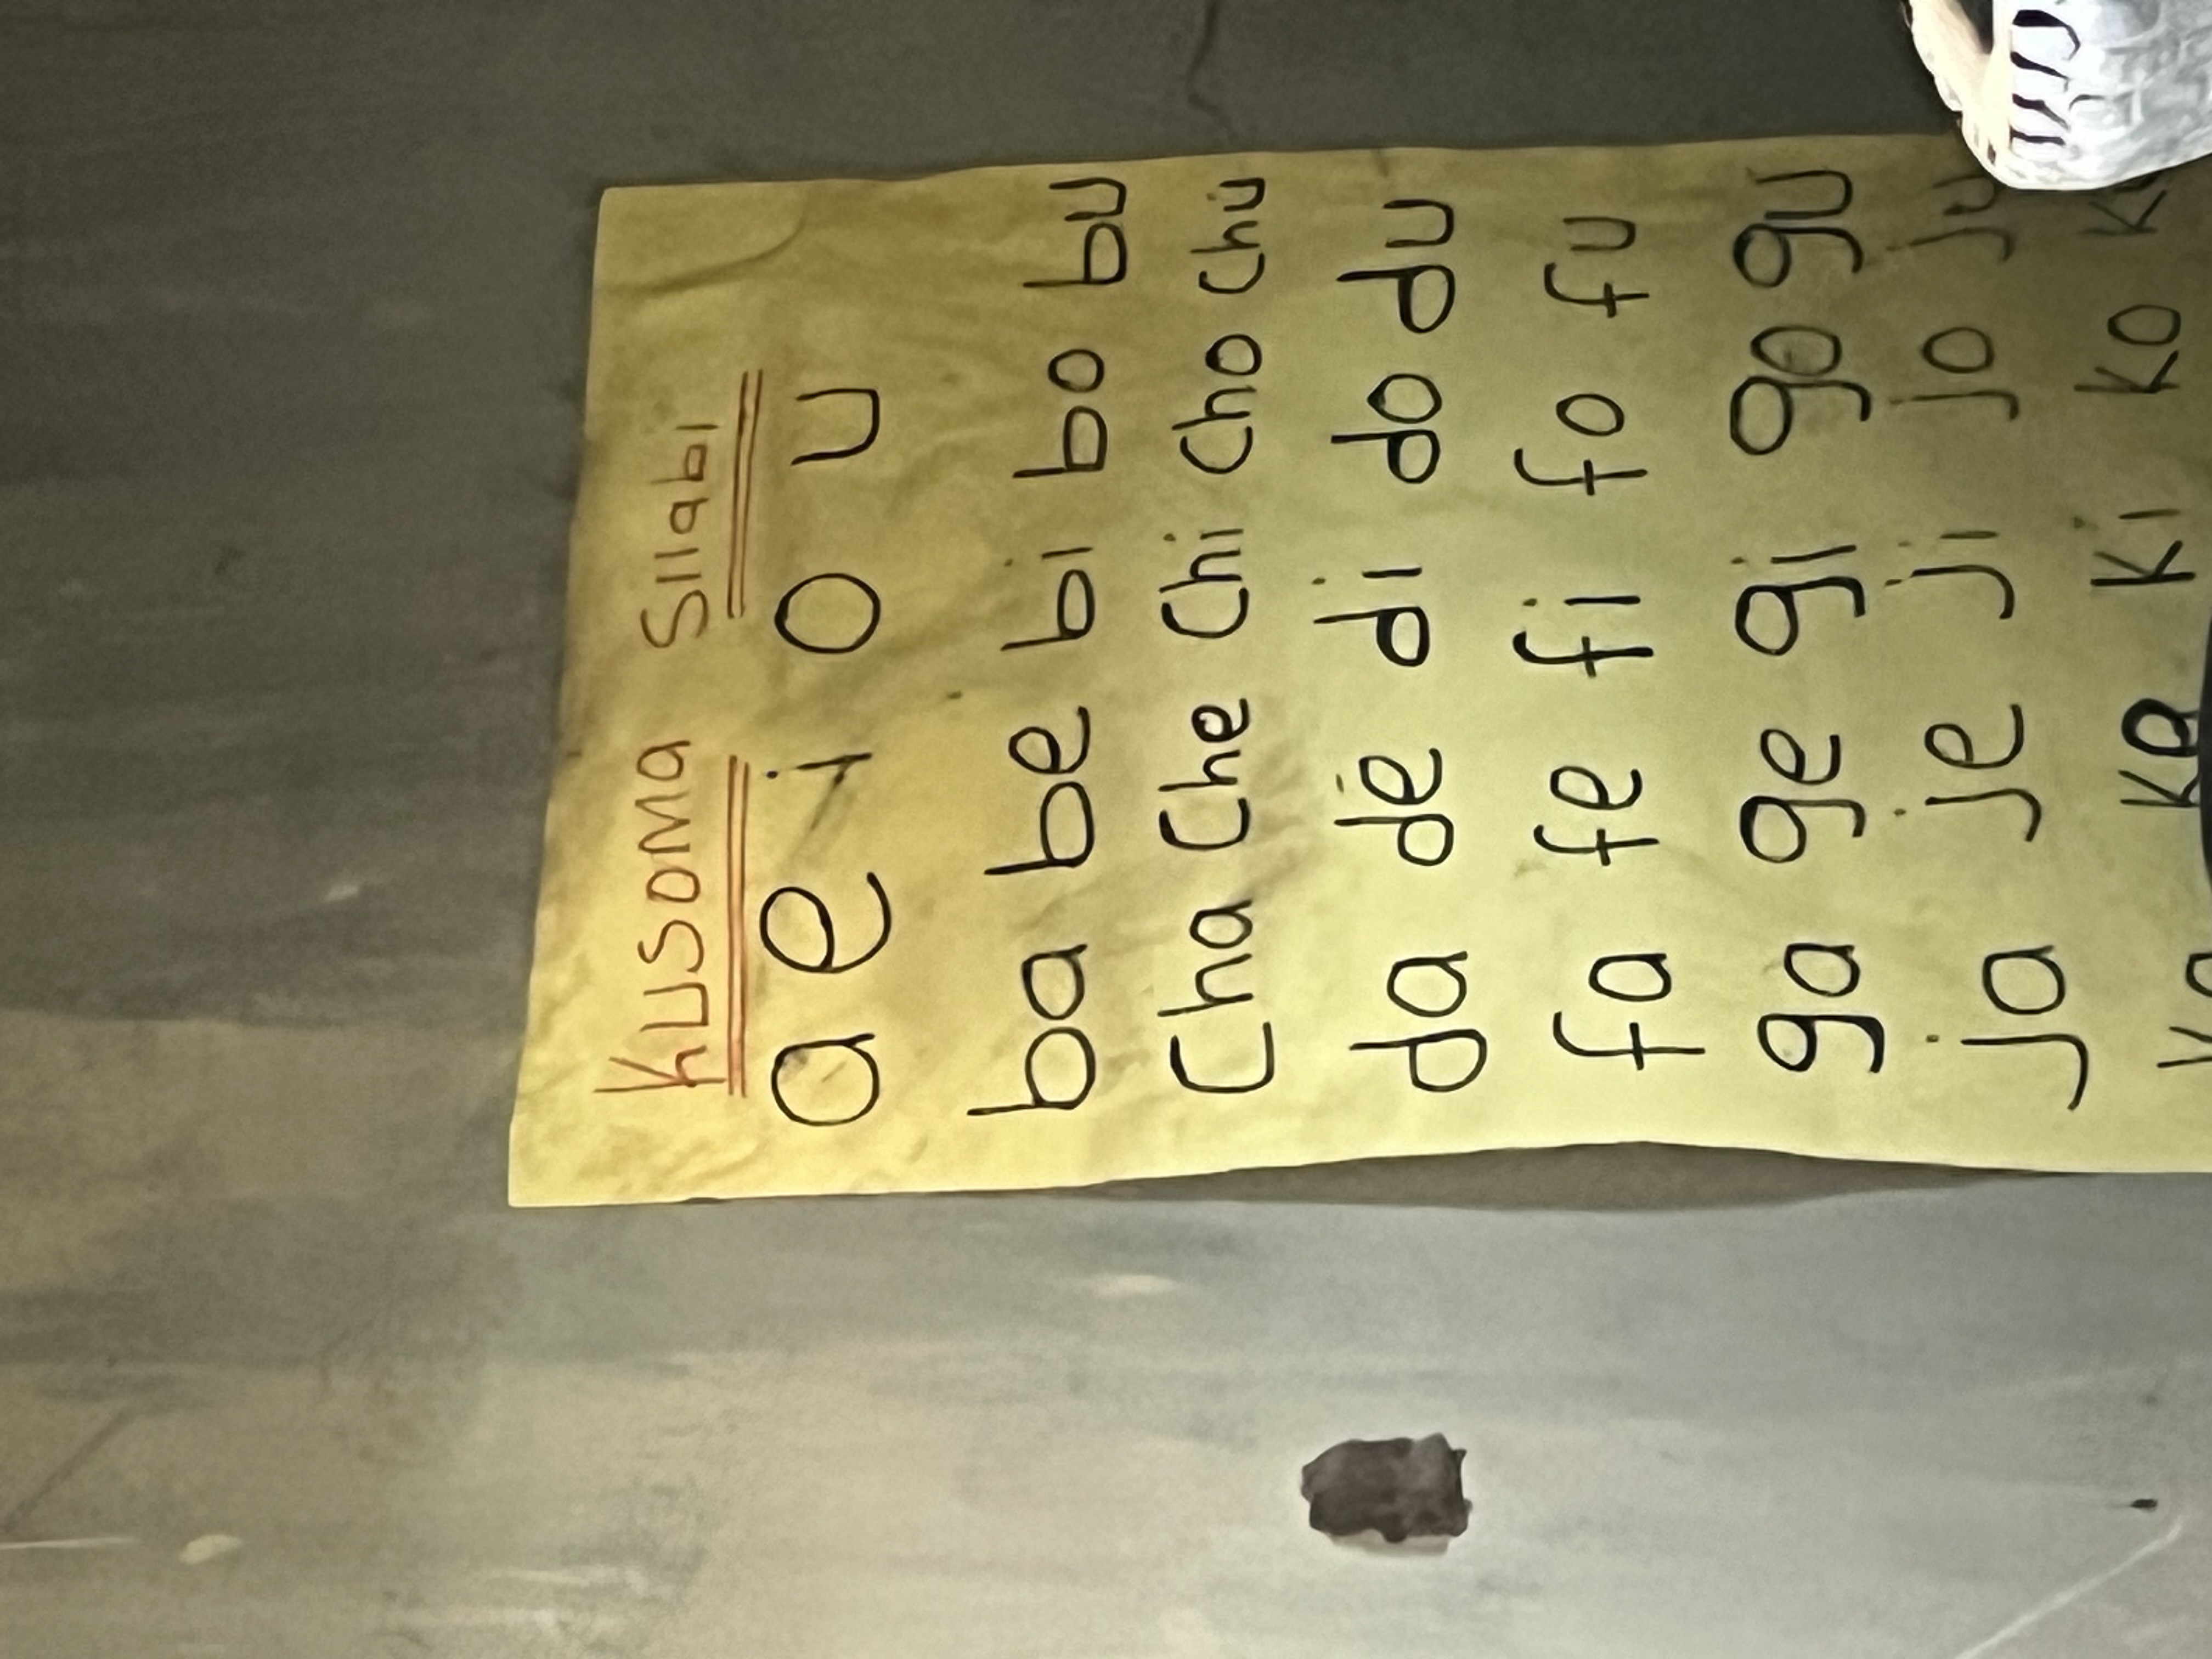 Kusoma Sillabi
a e i o u
ba be bi bo bu
Cha Che Chi Cho Chu
da de di do du
fa fe fi fo fu
ga ge gi go gu
ja je ji jo ju
ke ki ko